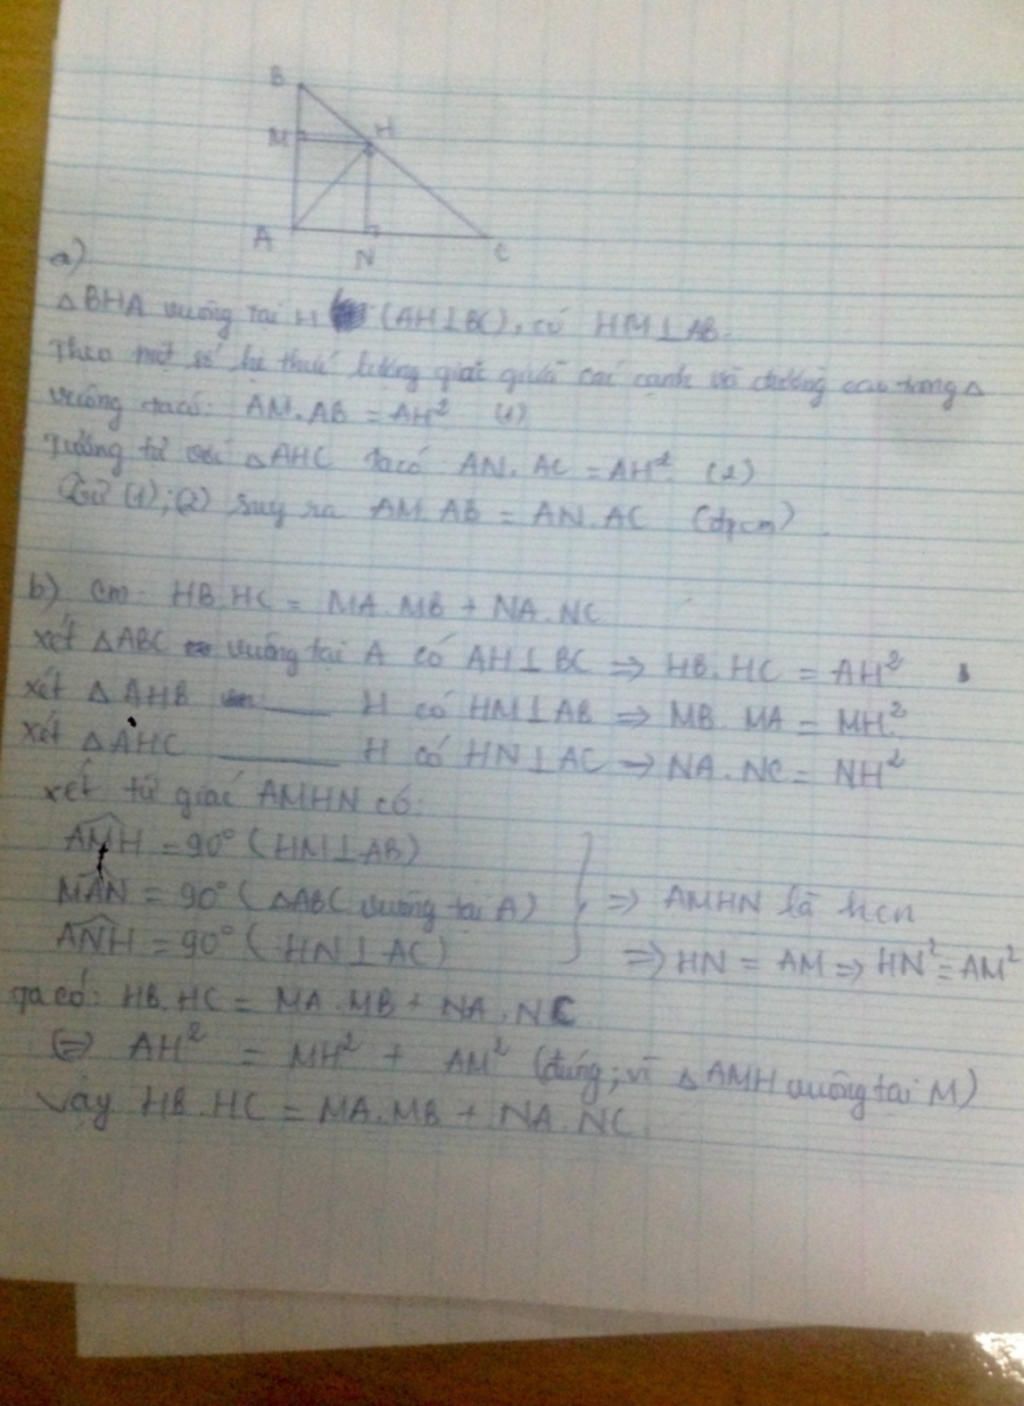 B
M H
A N C
a)
△BHA vuông tại H (AH⊥BC), có HM⊥AB.
Theo một số hệ thức lượng giác giữa các cạnh và đường cao trong △
vuông ta có: AM.AB = AH² (1)
Tương tự với △AHC ta có AN.AC = AH² (2)
Từ (1);(2) suy ra AM.AB = AN.AC (đpcm).
b) Cm: HB.HC = MA.MB + NA.NC
xét △ABC vuông tại A có AH⊥BC => HB.HC = AH²
xét △AHB ____ H có HM⊥AB => MB.MA = MH²
xét △AHC ____ H có HN⊥AC => NA.NC = NH²
xét tứ giác AMHN có:
AMH = 90° (HM⊥AB)
MAN = 90° (△ABC vuông tại A) => AMHN là hcn
ANH = 90° (HN⊥AC) => HN = AM => HN² = AM²
Ta có: HB.HC = MA.MB + NA.NC
<=> AH² = MH² + AM² (đúng; vì △AMH vuông tại M)
Vậy HB.HC = MA.MB + NA.NC.